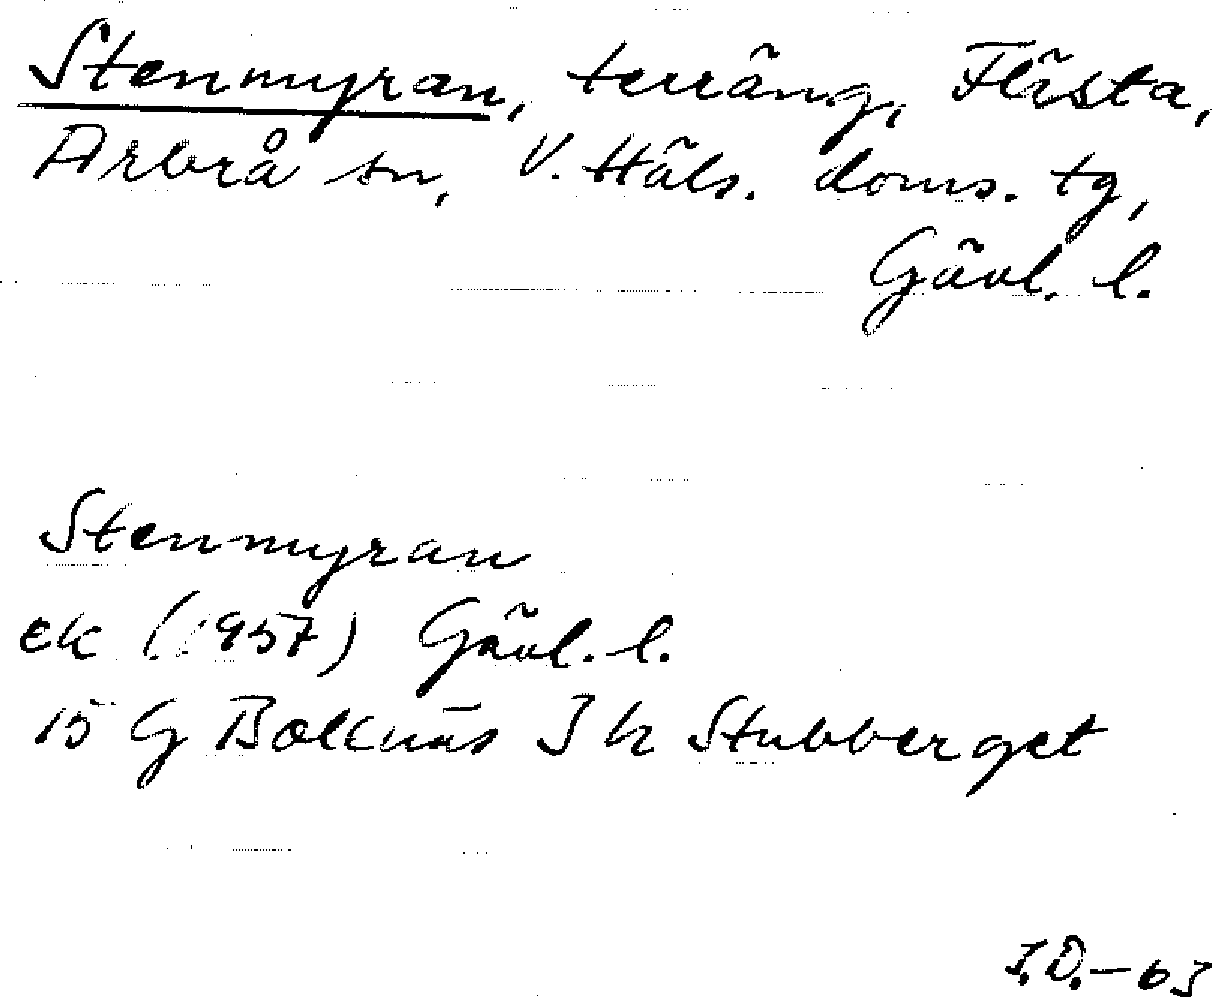 Stenmyran, terräng, Flästa,
Arbrå sn, V. Häls. doms. tg,
Gävl. l.
Stenmyran
ek (1957) Gävl. l.
15 G Bollnäs 3 h Stubberget
I.D. - 63